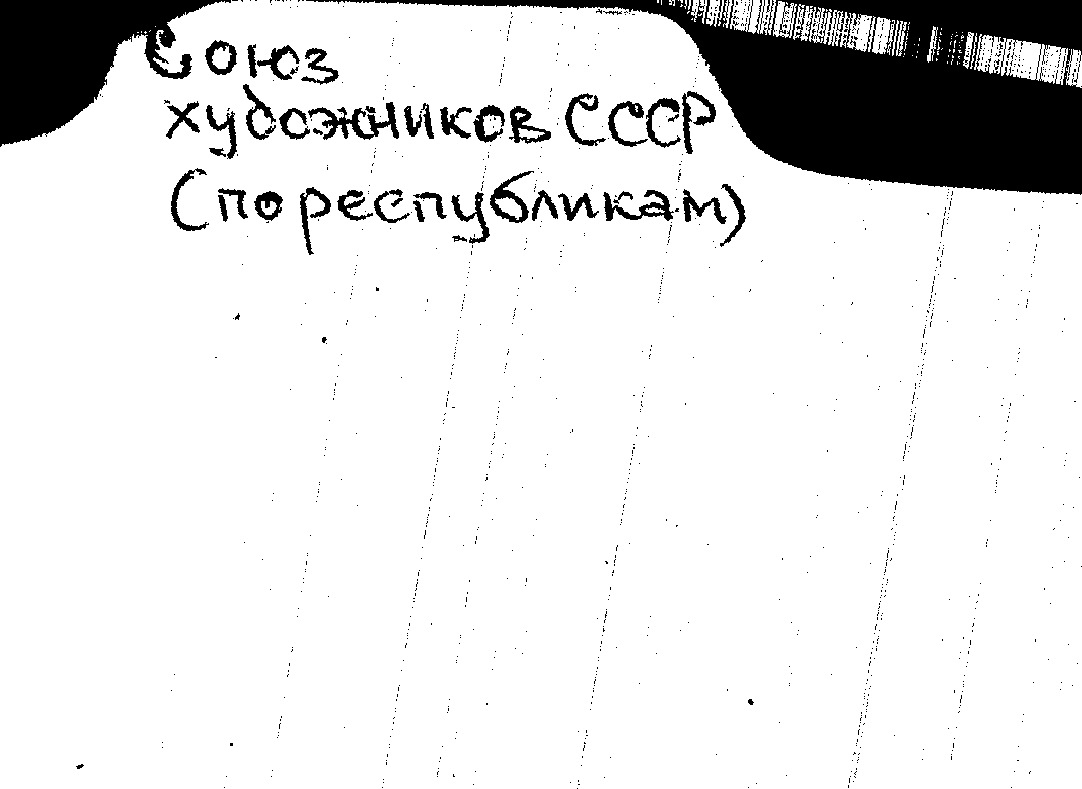 Союз
художников СССР
(по республикам)